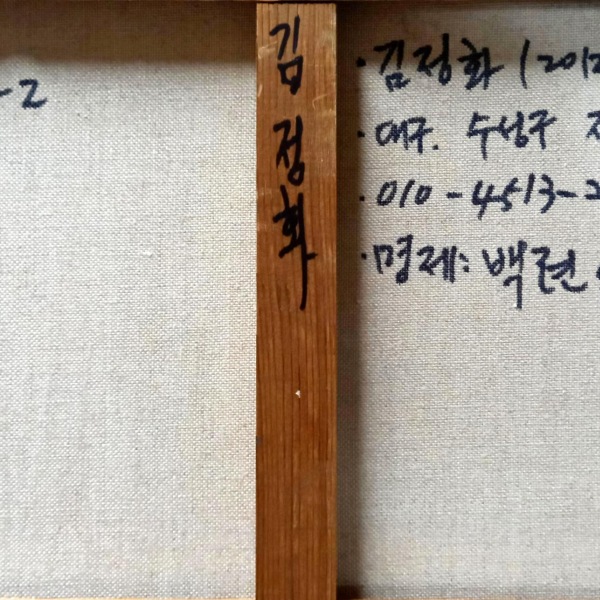 -2
김정화
· 김정화 (2012
· 대구. 수성구 지
· 010-4513-2
· 명제: 백련